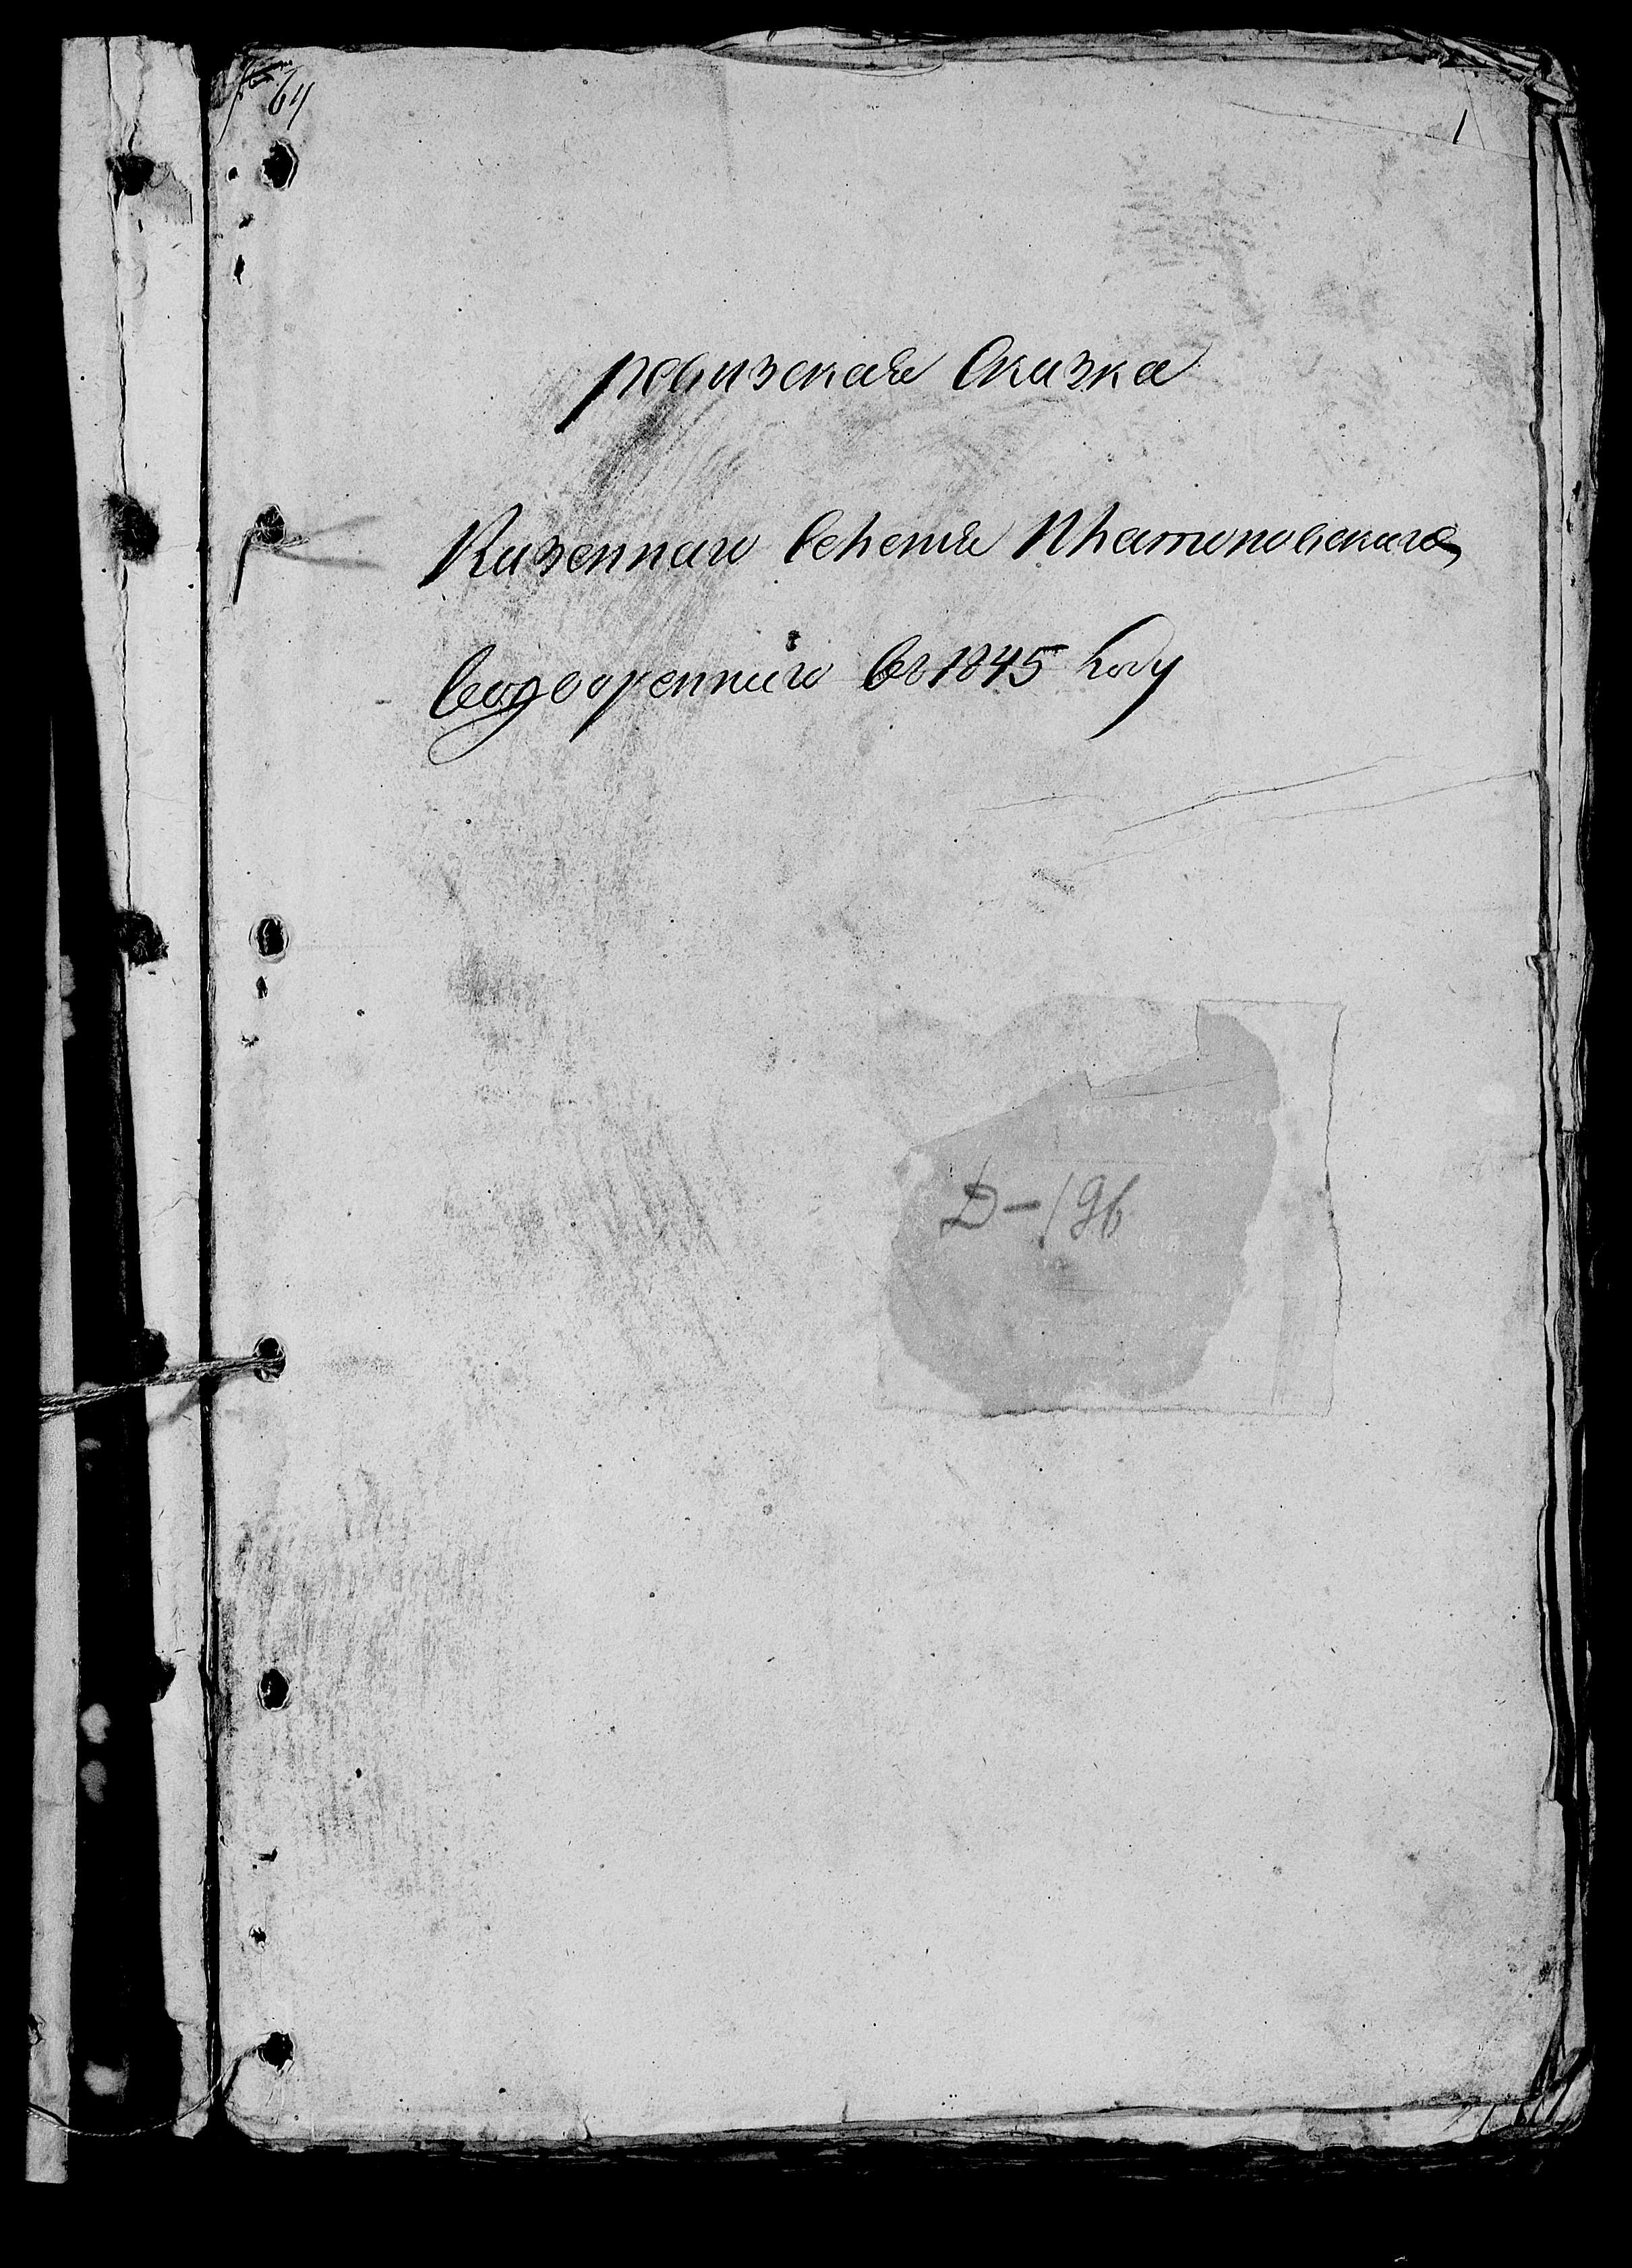 64
1
ревизская Сказка
Казеннаго Селенія Платоновскаго
водвореннаго въ 1845 году
D-196